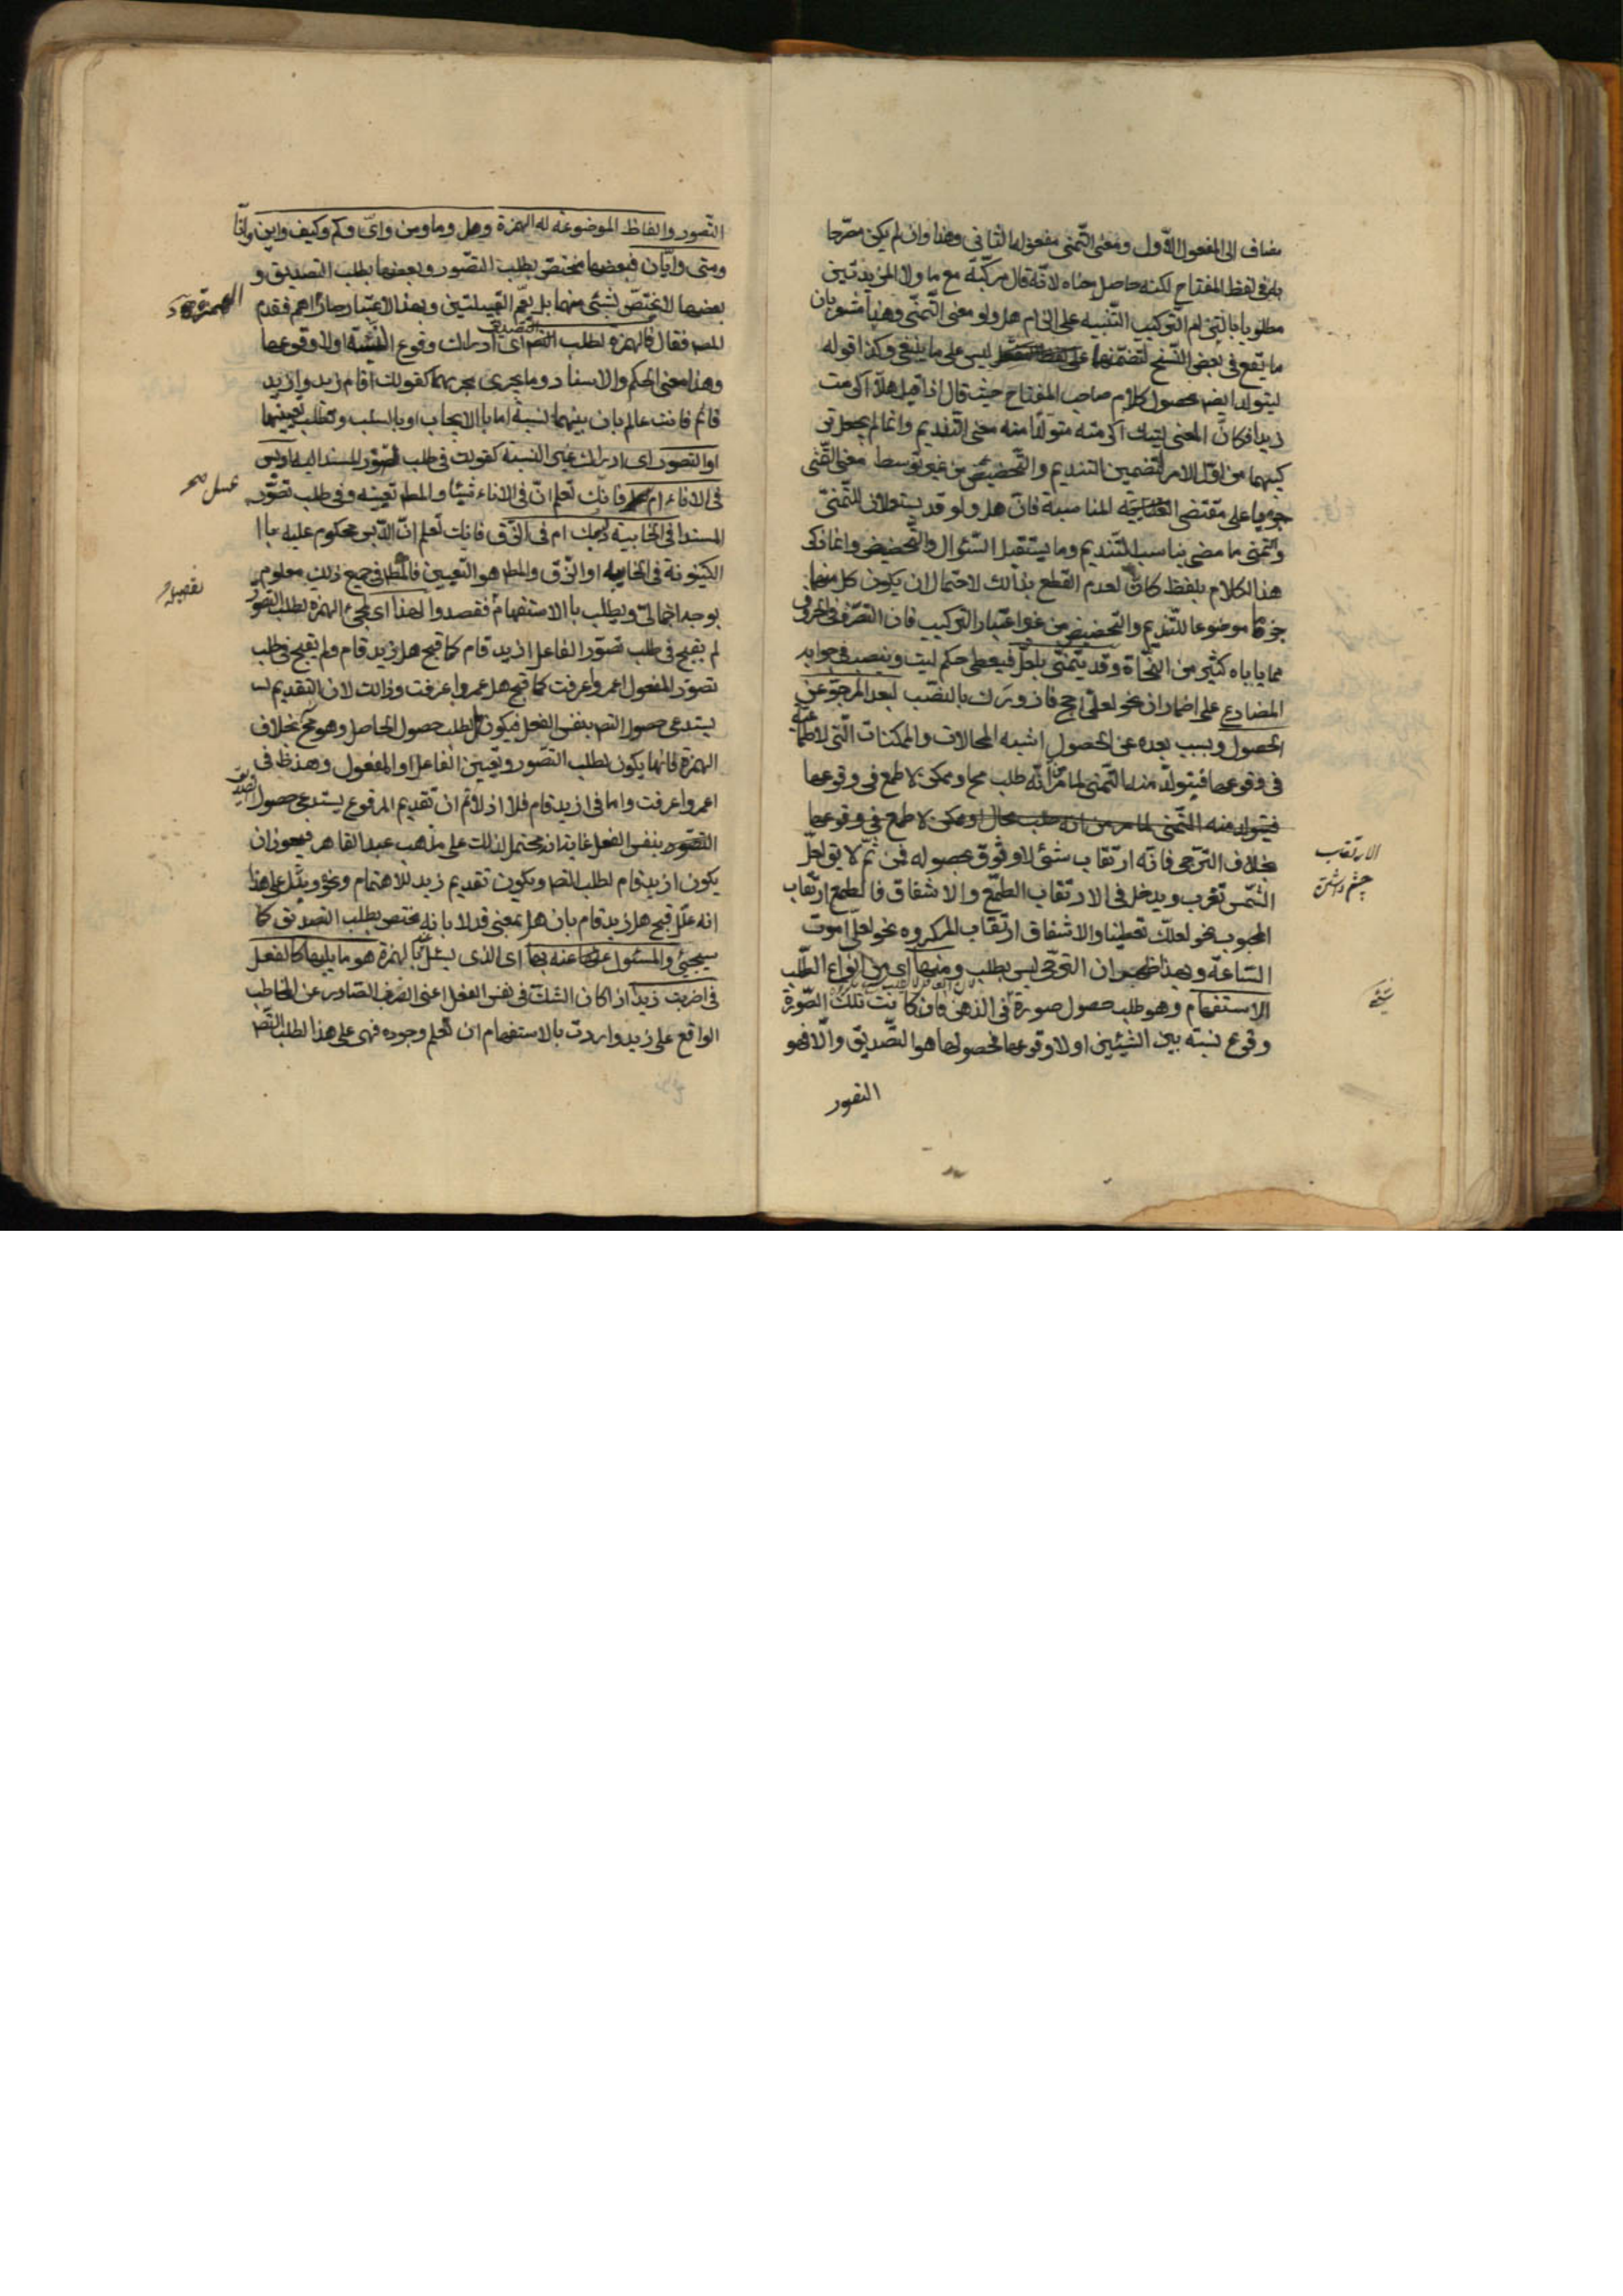 مضاف الى المفعول الاول ومعنى التمنى مفعوله الثانى وهذا وان لم يكن مصرحا
به فى لفظ المفتاح لكنه حاصل معناه لانه قال مركبة مع ما ولا المزيدتين
مطلوبا بالتزام التركيب التنبيه على الزام هل ولو معنى التمنى وهذا مشعر بان
ما يقع فى بعض النسخ لتضمنهما ليس على ما ينبغى وكذا قوله
ليتولد ايضه محصول كلام صاحب المفتاح حيث قال اذا قيل هلا اكرمت
زيدا فكان المعنى ليتك اكرمته متولدا منه معنى التنديم وانما لم يجعل تر
كيبهما من اول الامر لتضمين التنديم والتحضيض من غير توسط معنى التمنى
جريا على مقتضى المناسبة فان هل ولو قد يستعملان للتمنى
وتمنى ما مضى يناسب التنديم وما يستقبل السئوال والتحضيض وانما ذكر
هذا الكلام بلفظ كان لعدم القطع بذالك لاحتمال ان يكون كل منهما
حرفا موضوعا للتنديم والتحضيض من غير اعتبار التركيب فان التصرف فى الحروف
مما ياباه كثير من النحاة وقد يتمنى بلعل فيعطى حكم ليت وينصب فى جوابه
المضارع على اضمار ان نحو لعلى احج فازورك بالنصب لبعد المرجو عن
الحصول وبسبب بعده عن الحصول اشبه المحالات والممكنات التى لا طماعية
فى وقوعها فيتولد منه التمنى لما مر انه طلب مح او ممكن لا طمع فى وقوعها
فيتولد منه التمنى لما مر من انه طلب محال او ممكن لا طمع فى وقوعها
بخلاف الترجى فانه ارتقاب شئ لا وثوق بحصوله فمن ثم لا يق لعل
الشمس تغرب ويدخل فى الارتقاب الطمع والاشفاق فالطمع ارتقاب
المحبوب نحو لعلك تعطينا والاشفاق ارتقاب المكروه نحو لعلى اموت
الساعة وبهذا ظهر ان الترجى ليس بطلب ومنها اى من انواع الطلب
الاستفهام وهو طلب حصول صورة فى الذهن فان كانت تلك الصورة
وقوع نسبة بين الشيئين او لا وقوعها فحصولها هو التصديق والا فهو
التصور
الارتقاب
چشم داشتن
التصور والفاظ الموضوعة له الهمزة وهل وما ومن واى وكم وكيف واين وانا
ومتى وايان فبعضها مختص بطلب التصور وبعضها بطلب التصديق و
بعضها لا يختص بشئ منهما بل يعم القبيلتين وبهذا الاعتبار صار اهم فقدم
فقال فالهمزة لطلب التصديق اى ادراك وقوع النسبة او لا وقوعها
وهذا معنى الحكم والاسناد وما يجرى مجريهما كقولك اقام زيد وازيد
قائم فانت عالم بان بينهما نسبة اما بالايجاب او بالسلب وتطلب تعيينها
او التصور اى ادراك غير النسبة كقولك فى طلب تصور المسند اليه ادبس
فى الاناء ام عسل فانك تعلم ان فى الاناء شيئا والمط تعيينه وفى طلب تصور
المسند افى الخابية دبسك ام فى الزق فانت تعلم ان الدبس محكوم عليه با
الكينونة فى الخابيه او الزق والمط هو التعيين فالمط فى جميع ذلك معلوم
بوجه اجمالى ويطلب بالاستفهام فقصدوا لهذا اى لمجئ الهمزة لطلب التصور
لم يقبح فى طلب تصور الفاعل ازيد قام كما قبح هل زيد قام ولم يقبح فى طلب
تصور المفعول اعمروا عرفت كما قبح هل عمروا عرفت وذالك لان التقديم
يستدعى حصول التص بنفس الفعل فيكون هل لطلب حصول الحاصل وهو مح بخلاف
الهمزة فانها يكون لطلب التصور وتعيين الفاعل او المفعول وهذ ظ فى
اعمروا عرفت واما فى ازيد قام فلا اذ لا ثم ان تقديم المرفوع يستدعى حصول
التصديق بنفس الفعل غايته انه محتمل لذلك على مذهب عبد القاهر فيجوز ان
يكون ازيد قام لطلب التص ويكون تقديم زيد للاهتمام ونحوه ويدل على هذا
انه علل قبح هل زيد قام بان هل بمعنى قد لا بانه مختص بطلب التصديق كما
سيجئ والمسئول عنه بها اى الذى يسئل عنه بالهمزة هو ما يليها كالفعل
فى اضربت زيدا اذا كان الشك فى نفس الفعل اعنى الضرب الصادر عن المخاطب
الواقع على زيد واردت بالاستفهام ان تعلم وجوده فهى على هذا لطلب التص
عسل صح